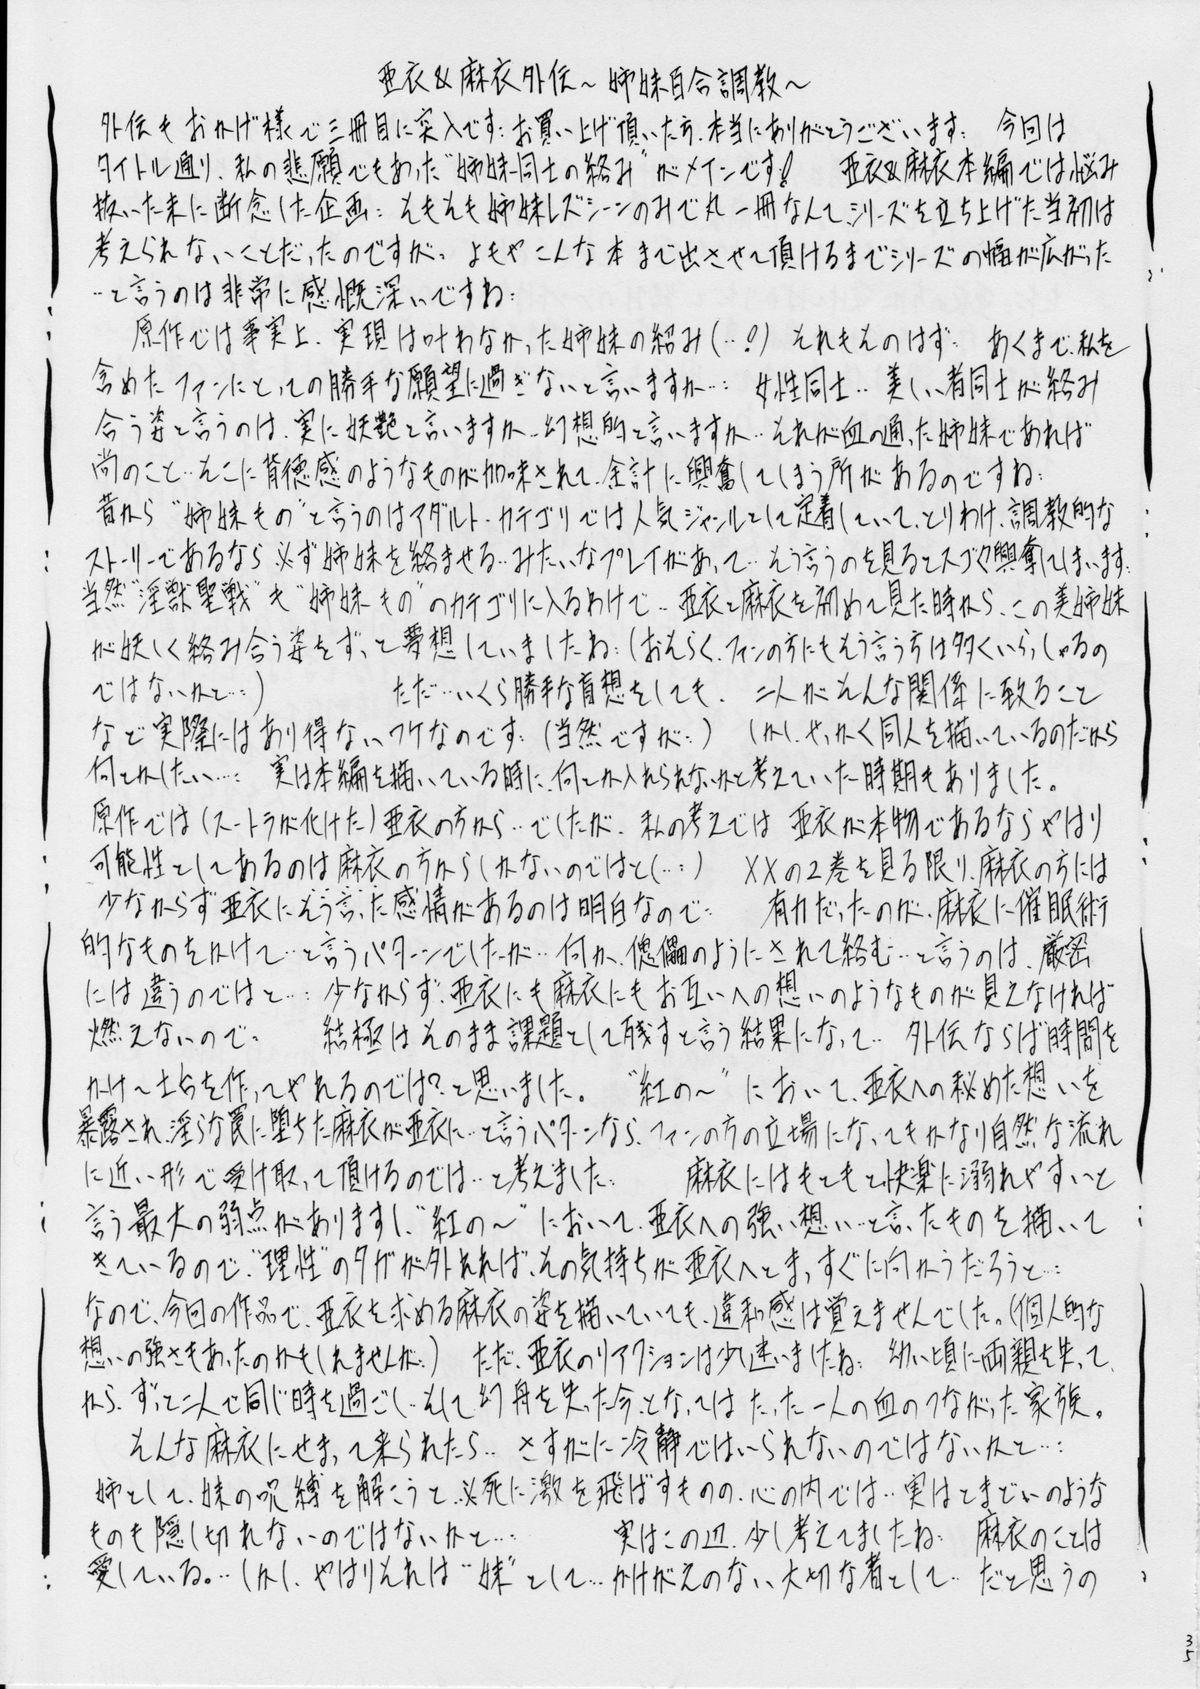 亜衣&麻衣外伝～姉妹百合調教～
外伝もおかげ様で三冊目に突入です… お買い上げ頂いた方、本当にありがとうございます… 今回は
タイトル通り、私の悲願でもあった“姉妹同士の絡み”がメインです! 亜衣&麻衣本編では悩み
抜いた末に断念した企画… そもそも姉妹レズシーンのみで丸一冊なんてシリーズを立ち上げた当初は
考えられないことだったのですが… よもやこんな本まで出させて頂けるまでシリーズの幅が広がった
…と言うのは非常に感慨深いですね…
原作では事実上、実現は叶わなかった姉妹の絡み(…?) それものはず… あくまで、私を
含めたファンにとっての勝手な願望に過ぎないと言いますか… 女性同士…美しい者同士が絡み
合う姿と言うのは、実に妖艶と言いますか…幻想的と言いますか…それが血の通った姉妹であれば
尚のこと…そこに背徳感のようなものが加味されて、余計に興奮してしまう所があるのですね…
昔から“姉妹もの”と言うのはアダルト・カテゴリでは人気ジャンルとして定着していて、とりわけ、調教的な
ストーリーであるなら必ず姉妹を絡ませる…みたいなプレイがあって…そう言うのを見るとスゴク興奮してしまいます…
当然“淫獣聖戦”も“姉妹もの”のカテゴリに入るわけで…亜衣と麻衣を初めて見た時から、この美姉妹
が妖しく絡み合う姿をずっと夢想していましたね…(おそらく、ファンの方にもそう言う方は多くいらっしゃるの
ではないかと…) ただ…いくら勝手な妄想をしても、二人がそんな関係に至ること
など実際にはあり得ないワケなのです…(当然ですが…) しかし、せっかく同人を描いているのだから
何とかしたい… 実は本編を描いている時に、何とか入れられないかと考えていた時期もありました。
原作では(スートラが化けた)亜衣の方から…でしたが、私の考えでは亜衣が本物であるならやはり
可能性としてあるのは麻衣の方からしかないのではと(…) XXの2巻を見る限り、麻衣の方には
少なからず亜衣にそう言った感情があるのは明白なので… 有力だったのが、麻衣に催眠術
的なものをかけて…と言うパターンでしたが…何か、傀儡のようにされて絡む…と言うのは、厳密
には違うのではと…少なからず、亜衣にも麻衣にもお互いへの想いのようなものが見えなければ
燃えないので… 結極はそのまま課題として残すと言う結果になって… 外伝ならば時間を
かけ～土台を作ってやれるのでは?と思いました。 “紅の～”において、亜衣への秘めた想いを
暴露され、淫らな罠に堕ちた麻衣が亜衣に…と言うパターンなら、ファンの方の立場になってもかなり自然な流れ
に近い形で受け取って頂けるのでは…と考えました… 麻衣にはもともと快楽に溺れやすいと
言う最大の弱点がありますし、“紅の～”において、亜衣への強い想い…と言ったものを描いて
きているので、“理性”のタガが外れれば、その気持ちが亜衣へとまっすぐに向かうだろうと…
なので、今回の作品で、亜衣を求める麻衣の姿を描いていても、違和感は覚えませんでした。(個人的な
想いの強さもあったのかもしれませんが…) ただ、亜衣のリアクションは少し迷いましたね… 幼い頃に両親を失って、
から、ずっと二人で同じ時を過ごし…そして、幻舟を失った今となってはたった一人の血のつながった家族。
そんな麻衣にせまって来られたら… さすがに冷静ではいられないのではないかと…
姉として、妹の呪縛を解こうと、必死に激を飛ばすものの、心の内では…実はとまどいのような
ものも隠し切れないのではないかと… 実はこの辺、少し考えてましたね… 麻衣のことは
愛している。…しかし、やはりそれは“妹”として…かけがえのない大切な者として…だと思うの
35